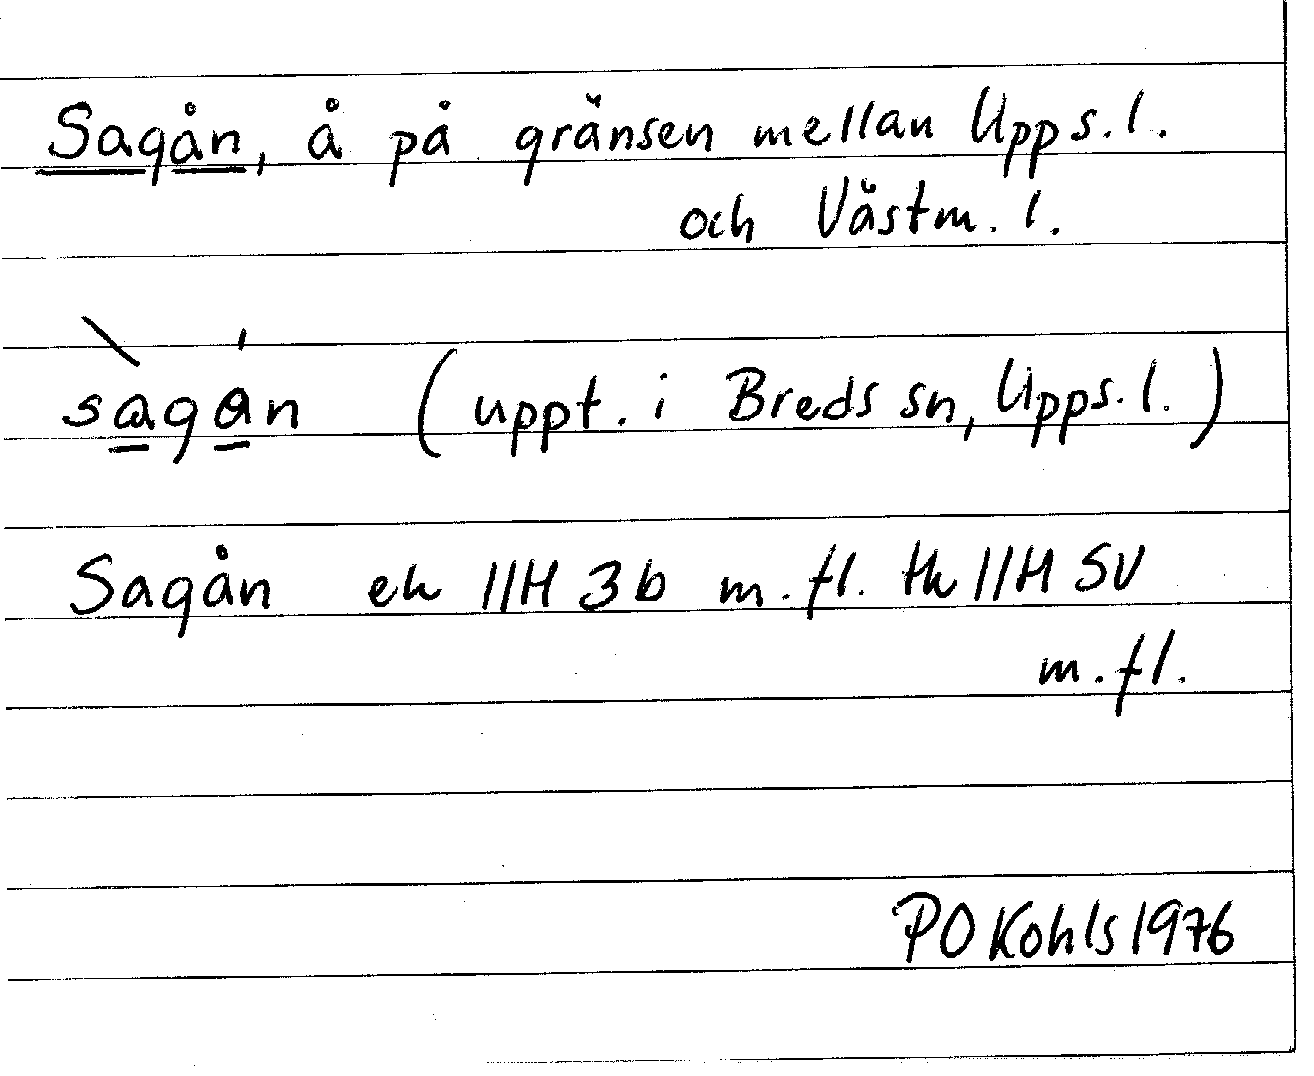 Sagån, å på gränsen mellan Upps.l.
och Västm.l.
sàgån (uppt. i Breds sn, Upps.l.)
Sagån ek 11H 3b m.fl. tk 11H SV
m.fl.
PO Kohls 1976